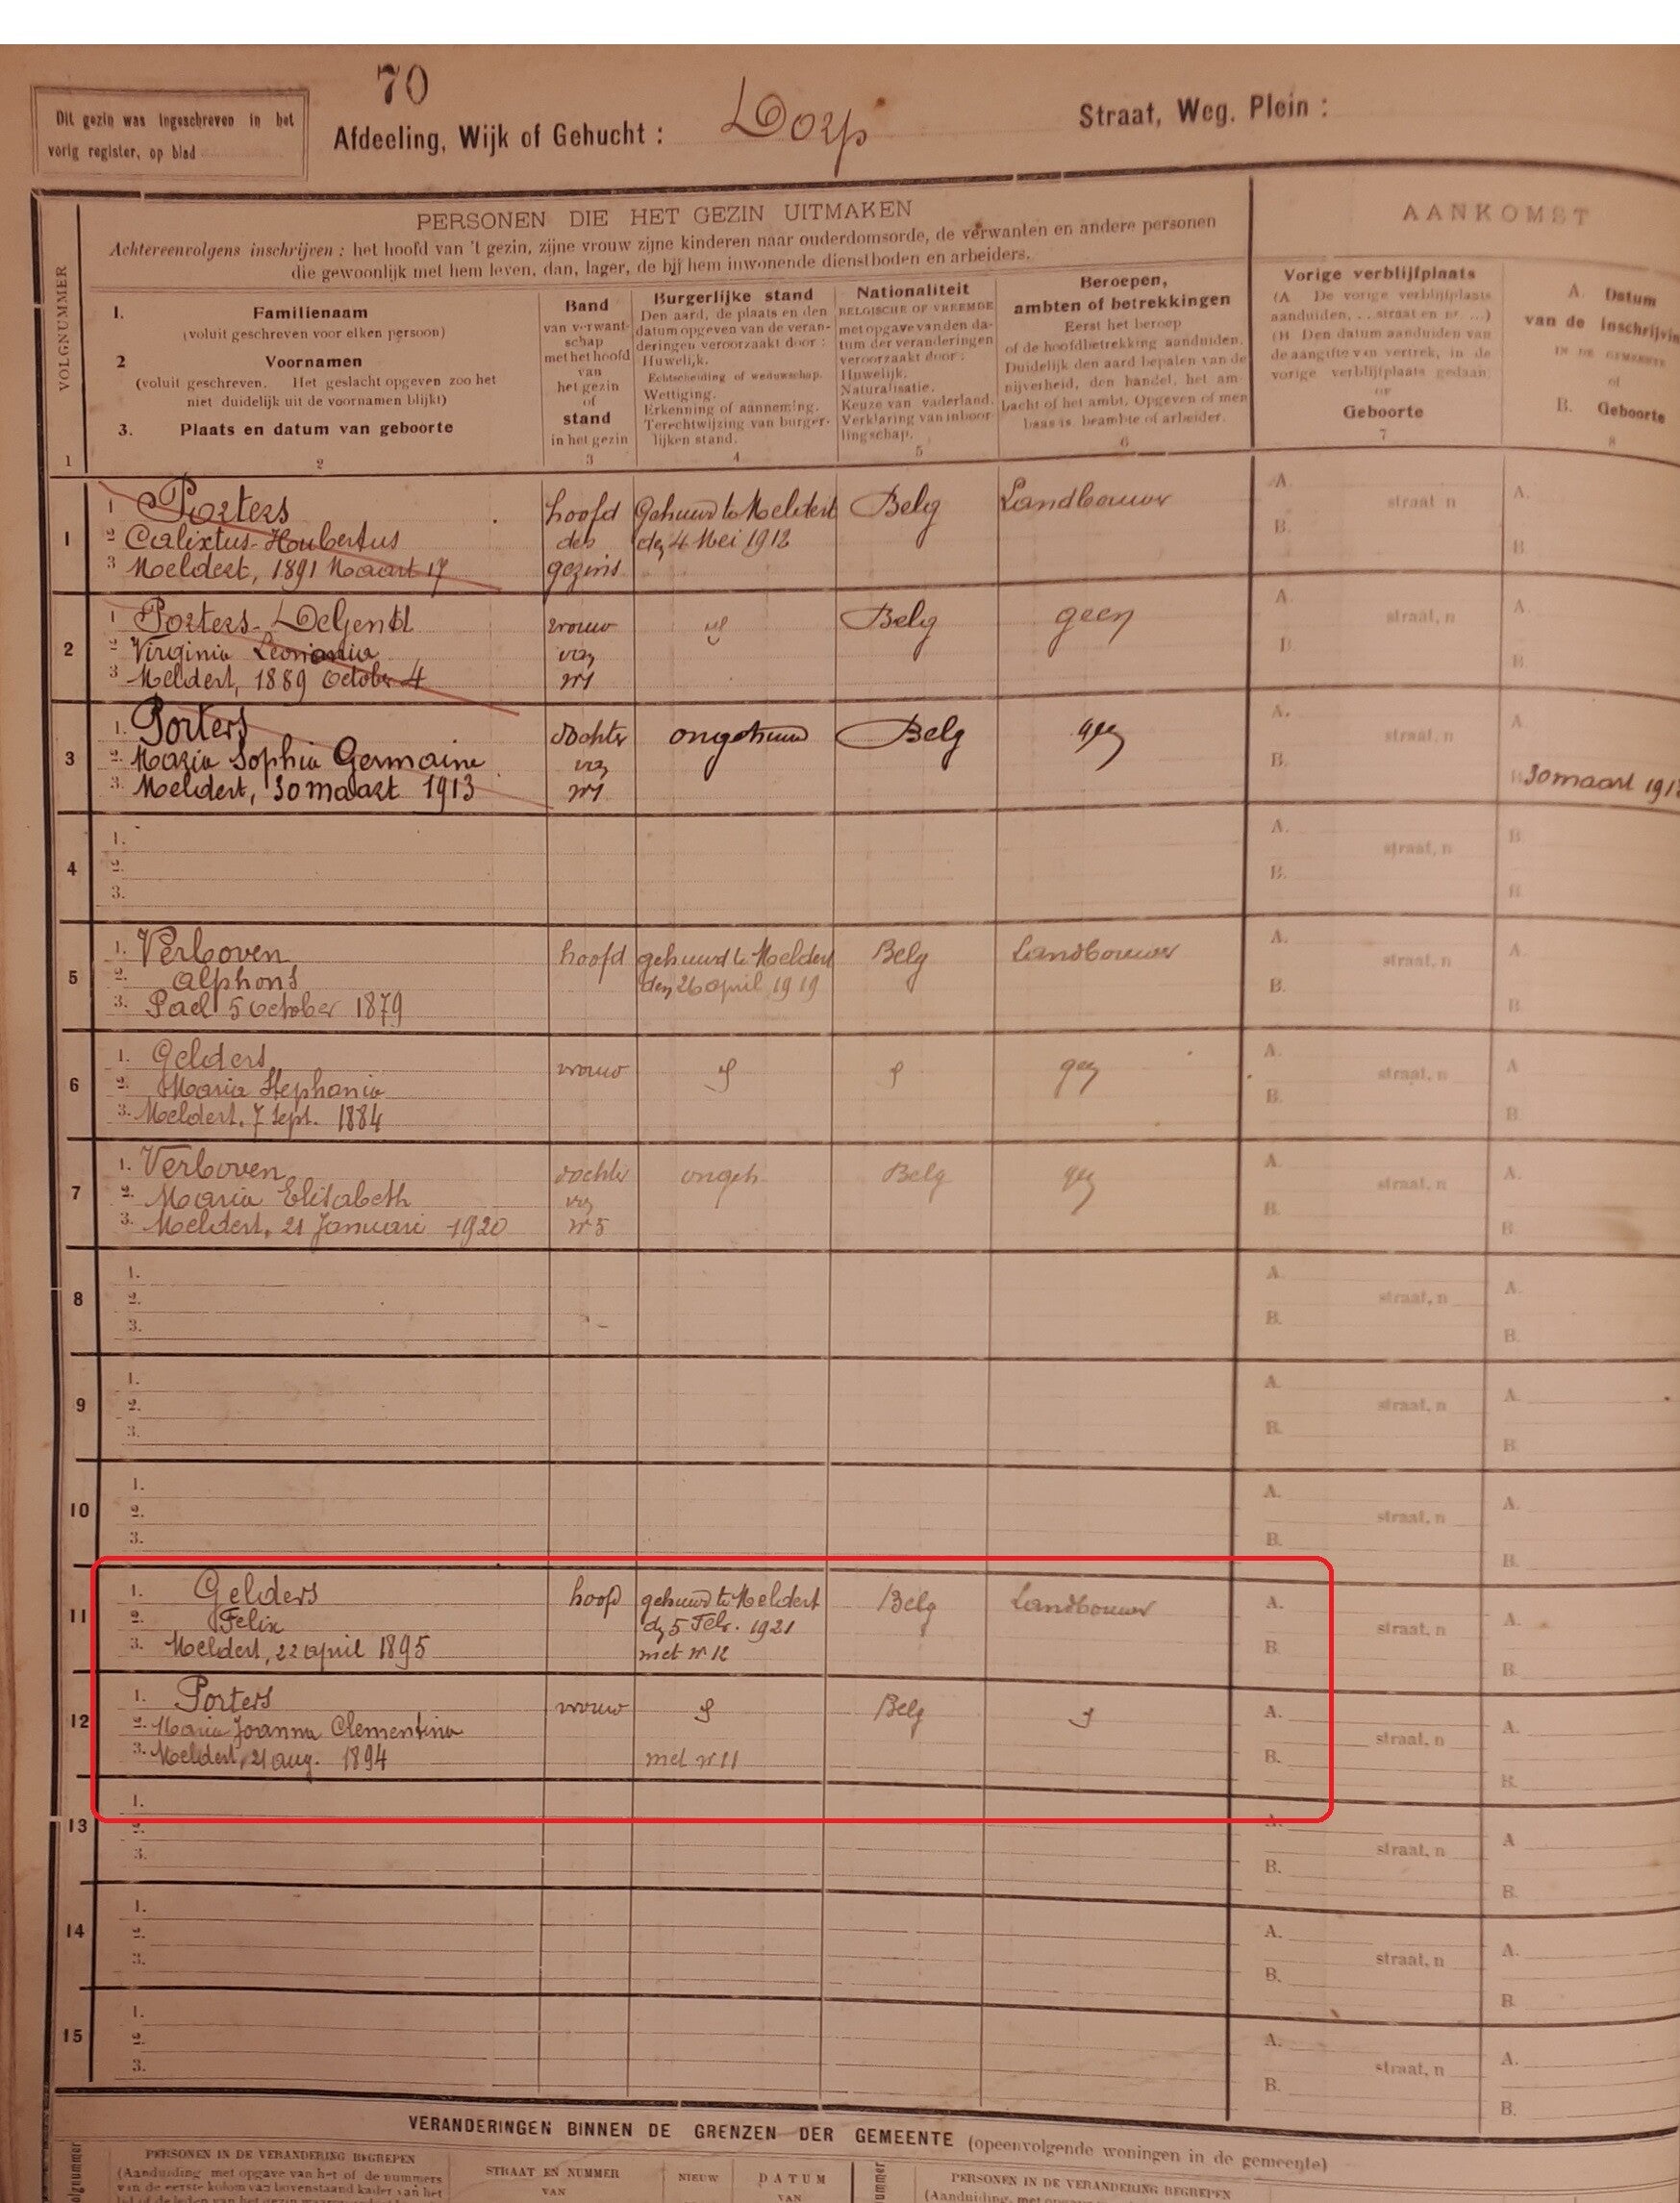 70
Dit gezin was ingeschreven in het
vorig register, op blad
Afdeeling, Wijk of Gehucht : Dorp
Straat, Weg, Plein :
PERSONEN DIE HET GEZIN UITMAKEN
Achtereenvolgens inschrijven : het hoofd van 't gezin, zijne vrouw zijne kinderen naar ouderdomsorde, de verwanten en andere personen
die gewoonlijk met hem leven, dan, lager, de bij hem inwonende dienstboden en arbeiders.
AANKOMST
VOLGNUMMER
1
I. Familienaam
(voluit geschreven voor elken persoon)
2 Voornamen
(voluit geschreven. Het geslacht opgeven zoo het
niet duidelijk uit de voornamen blijkt)
3. Plaats en datum van geboorte
2
Band
van verwant-
schap
met het hoofd
van
het gezin
of
stand
in het gezin
3
Burgerlijke stand
Den aard, de plaats en den
datum opgeven van de veran-
deringen veroorzaakt door :
Huwelijk.
Echtscheiding of weduwschap.
Wettiging.
Erkenning of aanneming.
Terechtwijzing van burger-
lijken stand.
4
Nationaliteit
BELGISCHE OF VREEMDE
met opgave van den da-
tum der veranderingen
veroorzaakt door :
Huwelijk.
Naturalisatie.
Keuze van vaderland.
Verklaring van inboor-
lingschap.
5
Beroepen,
ambten of betrekkingen
Eerst het beroep
of de hoofdbetrekking aanduiden.
Duidelijk den aard bepalen van de
nijverheid, den handel, het am-
bacht of het ambt. Opgeven of men
baas is, beambte of arbeider.
6
Vorige verblijfplaats
(A De vorige verblijfplaats
aanduiden, . . straat en nr ...)
(B Den datum aanduiden van
de aangifte van vertrek, in de
vorige verblijfplaats gedaan
OF
Geboorte
7
A. Datum
van de inschrijvin
IN DE GEMEENTE
of
B. Geboorte
8
1
1 Porters hoofd Gehuwd te Meldert Belg Landbouwer A. straat n A.
2 Calixtus-Houbertus des den 4 Mei 1912 B.
3 Meldert, 1891 Maart 17 gezins B
2
1 Porters- vrouw Belg geen A. straat, n A.
2 Virginia van B.
3 Meldert, 1889 October 4 nr 1 B.
3
1. Porters dochter ongehuwd Belg geen A. straat, n A.
2. Maria Sophia Germaine van B.
3. Meldert, 30 maart 1913 nr 1 B 30 maart 191
4
1. A. straat, n B.
2. B.
3. B.
5
1. Verboven hoofd gehuwd te Meldert Belg Landbouwer A. straat, n A.
2. Alphons den 26 april 1919 B.
3. Pael 5 october 1879 B.
6
1. Gelders vrouw geen A. straat, n A
2. Maria Stephania B.
3. Meldert. 7 Sept. 1884 B.
7
1. Verboven dochter ongeh. Belg geen A. straat, n A.
2. Maria Elisabeth van B.
3. Meldert, 21 Januari 1920 nr 5 B.
8
1. A. straat, n A.
2. B.
3. B.
9
1. A. straat, n A.
2. B.
3. B.
10
1. A. straat, n A.
2. B.
3. B.
11
1. Gelders hoofd gehuwd te Meldert Belg Landbouwer A. straat, n A.
2. Felix den 5 Febr. 1921 B.
3. Meldert, 22 april 1895 met nr 12 B.
12
1. Porters vrouw Belg A. straat, n A.
2. Maria Joanna Clementina B.
3. Meldert, 21 aug. 1894 met nr 11 B.
13
1. A. straat, n A
2. B.
3. B.
14
1. A. straat, n A.
2. B.
3. B.
15
1. A. straat, n A.
2. B.
3. B.
VERANDERINGEN BINNEN DE GRENZEN DER GEMEENTE (opeenvolgende woningen in de gemeente)
PERSONEN IN DE VERANDERING BEGREPEN
(Aanduiding met opgave van het of de nummers
van de eerste kolom van bovenstaand kader van het
STRAAT EN NUMMER
VAN
NIEUW
DATUM
VAN
PERSONEN IN DE VERANDERING BEGREPEN